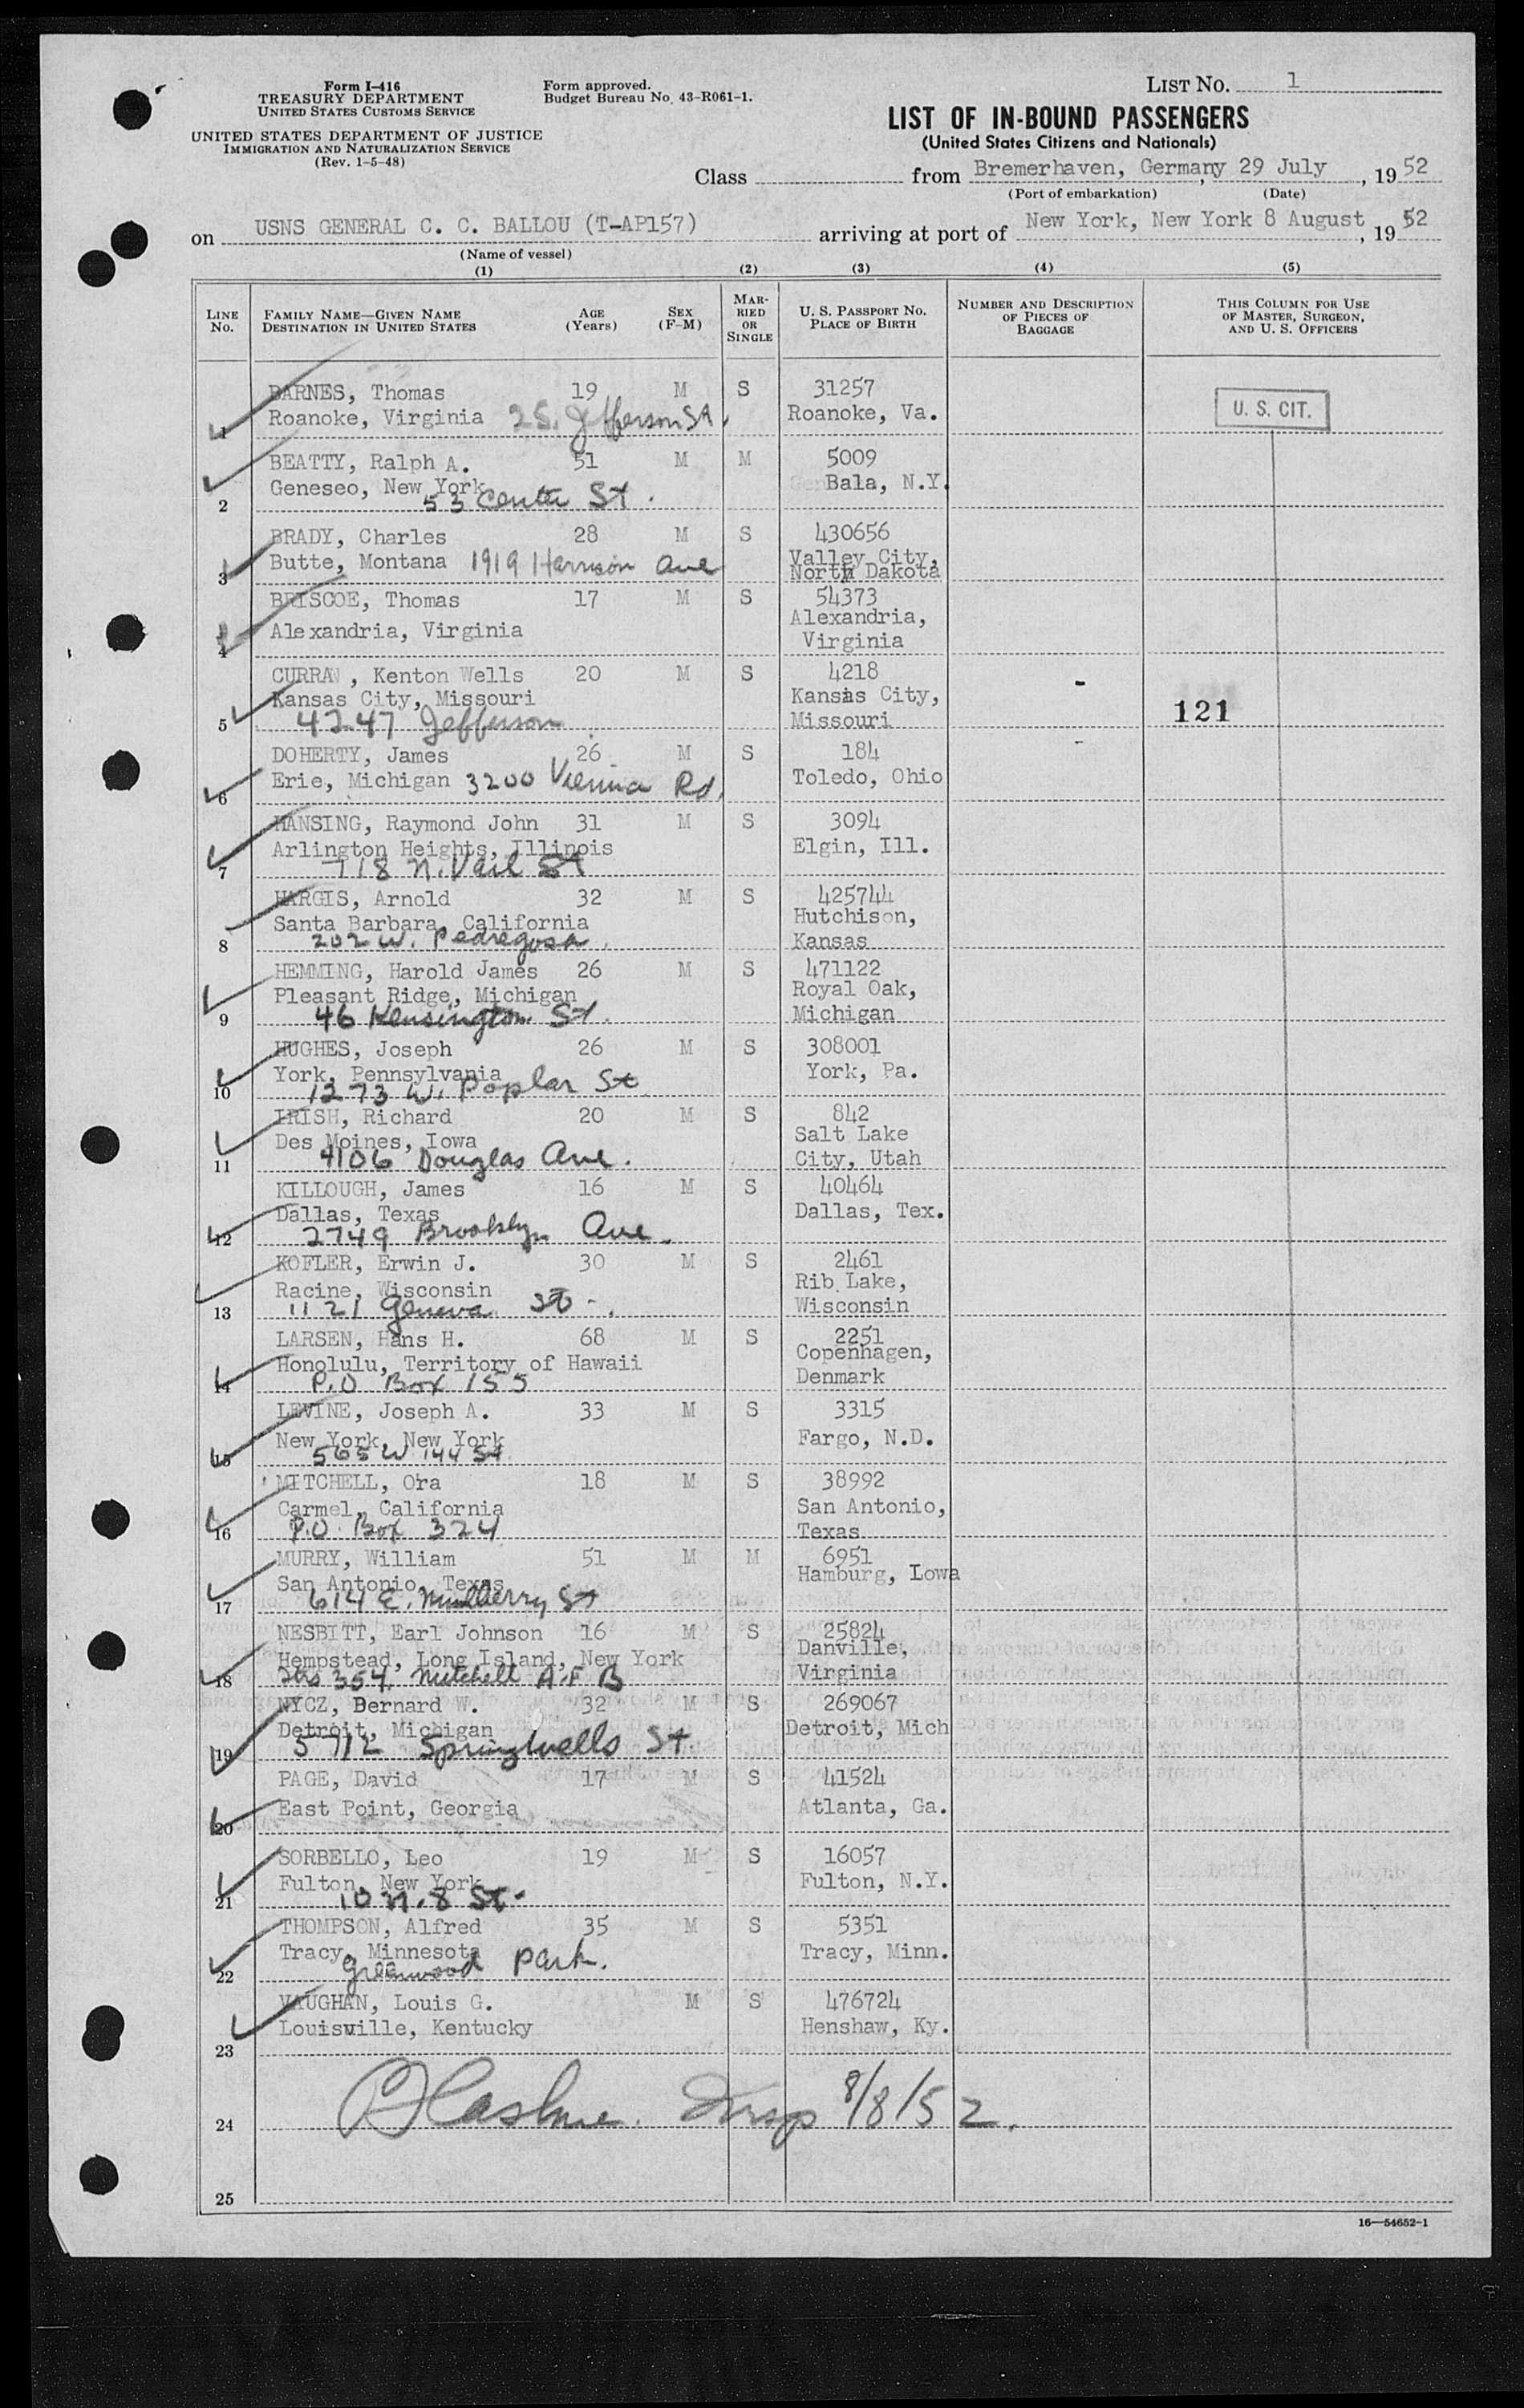 Form I-416
TREASURY DEPARTMENT
UNITED STATES CUSTOMS SERVICE
UNITED STATES DEPARTMENT OF JUSTICE
IMMIGRATION AND NATURALIZATION SERVICE
(Rev. 1-5-48)
Form approved.
Budget Bureau No. 43-R061-1.
LIST NO. 1
LIST OF IN-BOUND PASSENGERS
(United States Citizens and Nationals)
Class from Bremerhaven, Germany, 29 July, 1952
(Port of embarkation) (Date)
on USNS GENERAL C. C. BALLOU (T-AP157) arriving at port of New York, New York 8 August, 1952
(Name of vessel)
(1) (2) (3) (4) (5)
LINE NO.
FAMILY NAME—GIVEN NAME
DESTINATION IN UNITED STATES
AGE (Years)
SEX (F-M)
MARRIED OR SINGLE
U. S. PASSPORT NO.
PLACE OF BIRTH
NUMBER AND DESCRIPTION OF PIECES OF BAGGAGE
THIS COLUMN FOR USE OF MASTER, SURGEON, AND U. S. OFFICERS
BARNES, Thomas 19 M S 31257
1 Roanoke, Virginia 25. Jefferson St. Roanoke, Va.
U. S. CIT.
BEATTY, Ralph A. 51 M M 5009
Geneseo, New York Bala, N.Y.
2 53 Center St.
BRADY, Charles 28 M S 430656
3 Butte, Montana 1919 Harrison Ave Valley City, North Dakota
BRISCOE, Thomas 17 M S 54373
4 Alexandria, Virginia Alexandria, Virginia
CURRAN, Kenton Wells 20 M S 4218
Kansas City, Missouri Kansas City,
5 4247 Jefferson Missouri
121
DOHERTY, James 26 M S 184
6 Erie, Michigan 3200 Vienna Rd. Toledo, Ohio
HANSING, Raymond John 31 M S 3094
Arlington Heights, Illinois Elgin, Ill.
7 718 N. Vail St
HARGIS, Arnold 32 M S 425744
Santa Barbara, California Hutchison,
8 202 W. Pedregosa Kansas
HEMMING, Harold James 26 M S 471122
Pleasant Ridge, Michigan Royal Oak,
9 46 Kensington St. Michigan
HUGHES, Joseph 26 M S 308001
York, Pennsylvania York, Pa.
10 1273 W. Poplar St
IRISH, Richard 20 M S 842
Des Moines, Iowa Salt Lake
11 4106 Douglas Ave. City, Utah
KILLOUGH, James 16 M S 40464
Dallas, Texas Dallas, Tex.
12 2749 Brooklyn Ave.
KOFLER, Erwin J. 30 M S 2461
Racine, Wisconsin Rib Lake,
13 1121 Geneva St. Wisconsin
LARSEN, Hans H. 68 M S 2251
Honolulu, Territory of Hawaii Copenhagen,
14 P.O Box 155 Denmark
LEVINE, Joseph A. 33 M S 3315
New York, New York Fargo, N.D.
15 565 W 144 St.
MITCHELL, Ora 18 M S 38992
Carmel, California San Antonio,
16 P.O. Box 324 Texas
MURRY, William 51 M M 6951
San Antonio, Texas Hamburg, Iowa
17 614 E. Mulberry St
NESBITT, Earl Johnson 16 M S 25824
Hempstead, Long Island, New York Danville,
18 354, Mitchell A.F B Virginia
NYCZ, Bernard W. 32 M S 269067
Detroit, Michigan Detroit, Mich
19 5712 Springwells St
PAGE, David 17 M S 41524
20 East Point, Georgia Atlanta, Ga.
SORBELLO, Leo 19 M S 16057
Fulton, New York Fulton, N.Y.
21 10 N. 8 St.
THOMPSON, Alfred 35 M S 5351
Tracy, Minnesota Tracy, Minn.
22 Greenwood Park.
VAUGHAN, Louis G. M S 476724
Louisville, Kentucky Henshaw, Ky.
23
24 Insp 8/8/52.
25
16—54652-1